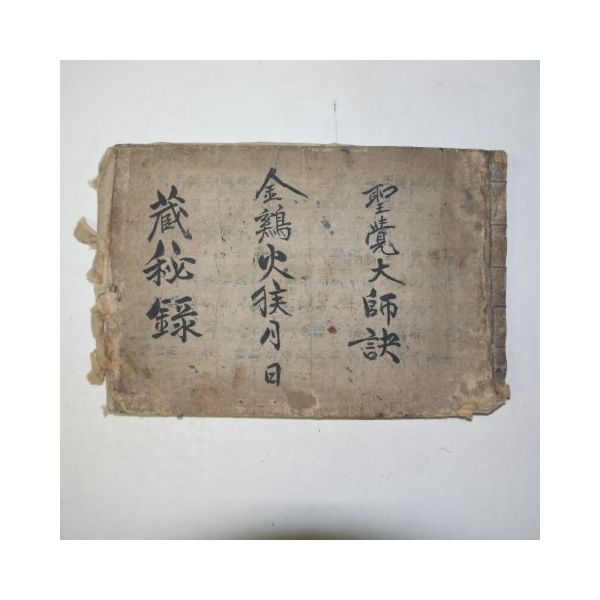 聖覺大師訣
金鷄火猴月日
藏秘錄